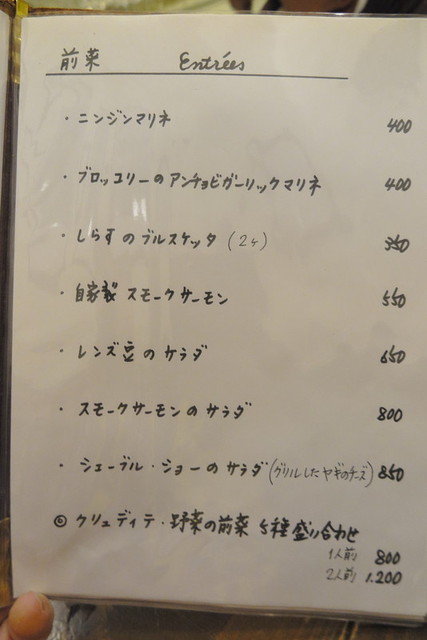 前菜 Entrées
・ニンジンマリネ 400
・ブロッコリーのアンチョビガーリックマリネ 400
・しらすのブルスケッタ (2ヶ) 350
・自家製 スモークサーモン 550
・レンズ豆のサラダ 650
・スモークサーモンのサラダ 800
・シェーブル・ショーのサラダ(グリルしたヤギのチーズ) 850
◎ クリュディテ・野菜の前菜 5種盛り合わせ
1人前 800
2人前 1.200